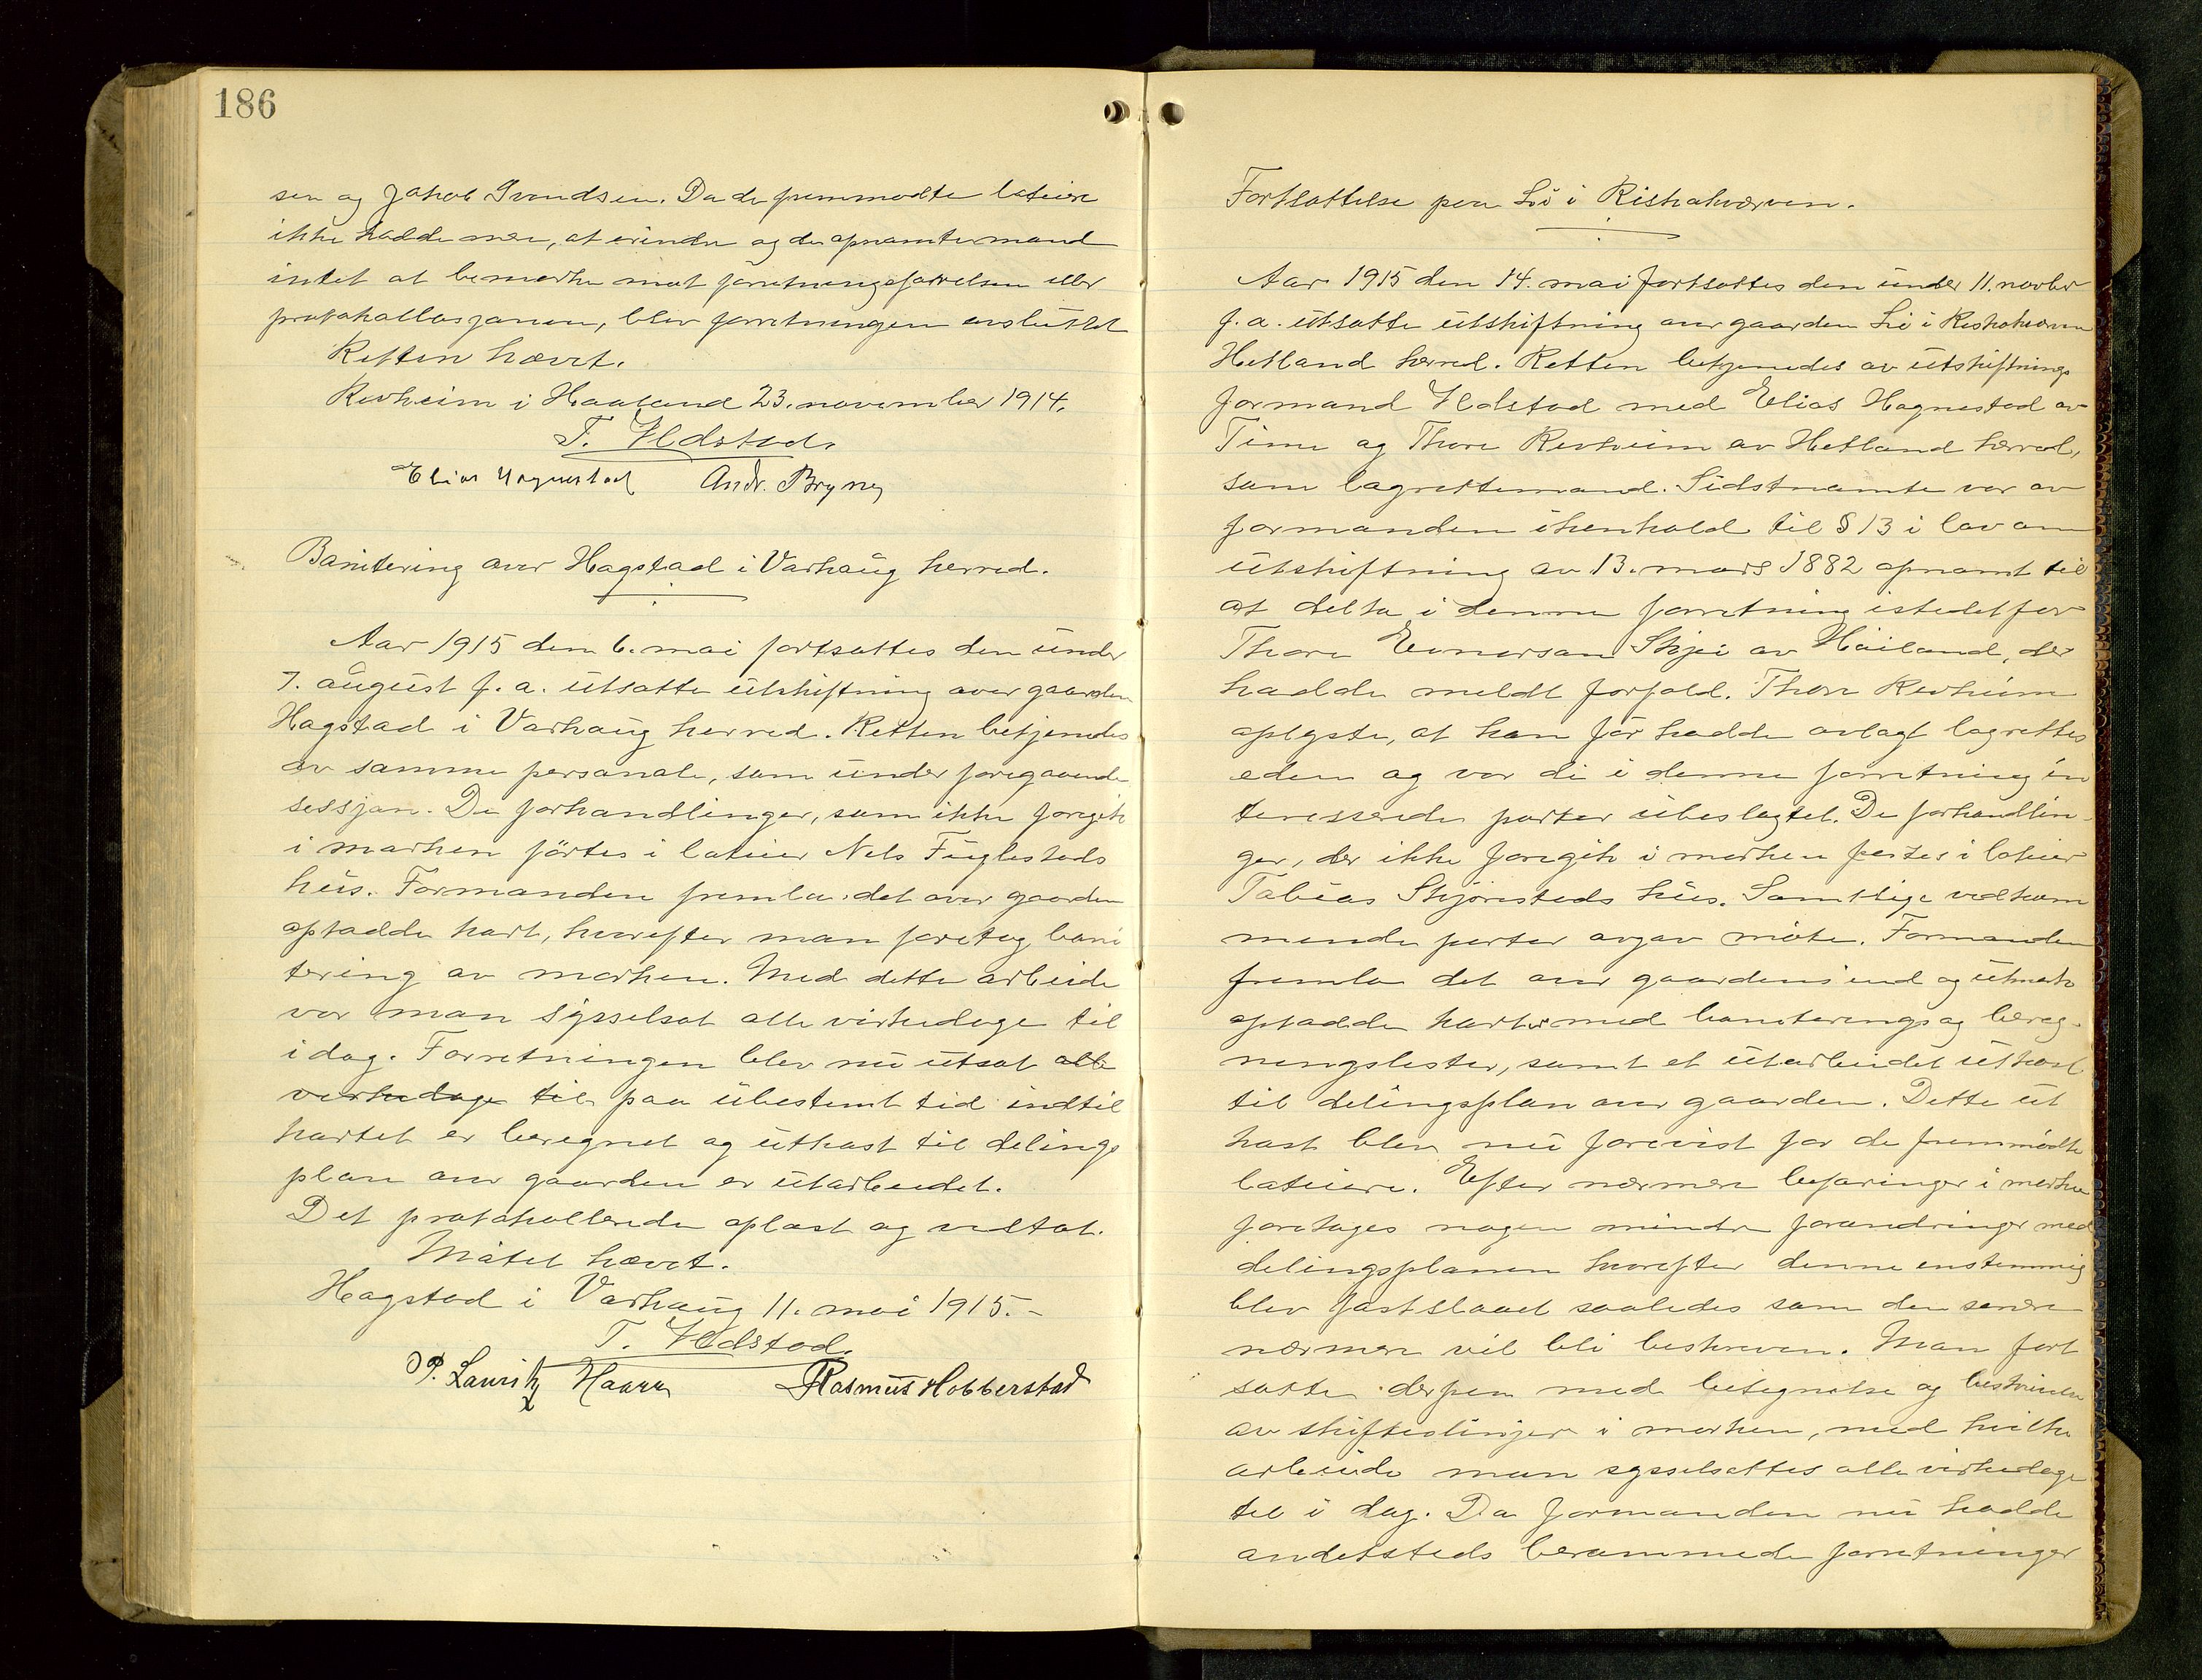 186
sen og Jakob Svendsen. Da de fremmødte lotteiere
ikke hadde mere, at erindre og de opnævnte mænd
intet at bemærke mot forretningsførelsen eller
protokollasjonen, blev forretningen avsluttet
Retten hævet.
Revheim i Haaland 23. november 1914.
T. Udstad.
Elias Hognestad Andr. Bryne
Bonitering over Hagstad i Varhaug herred.
Aar 1915 den 6. mai fortsattes den under
7. august f. a. utsatte utskiftning over gaarden
Hagstad i Varhaug herred. Retten betjenedes
av samme personale, som under foregaaende
sessjon. De forhandlinger, som ikke foregik
i marken förtes i lotteier Nels Fuglesteds
hus. Formanden fremla det over gaarden
optadde kart, hvorefter man foretog boni
tering av marken. Med dette arbeide
var man sysselsat alle virkedage til
idag. Forretningen blev nu utsat alle
virkedage til paa ubestemt tid indtil
kartet er beregnet og utkast til delings
plan over gaarden er utarbeidet.
Det protokollerede oplæst og vedtat.
Mötet hævet.
Hagstad i Varhaug 11. mai 1915.-
T. Udstad.
P. Lauritz Haarr Rasmus Hobberstad
Fortsættelse paa Li i Riskakværven.
Aar 1915 den 14. mai fortsattes den under 11. novbr
f. a. utsatte utskiftning over gaarden Li i Riskakværven
Hetland herred. Retten betjenedes av utskiftnings
formand Udstad med Elias Hognestad av
Time og Thore Revheim av Hetland herred,
som lagrettemænd. Sidstnævnte var av
formanden ihenhold til § 13 i lov om
utskiftning av 13. mars 1882 opnævnt til
at delta i denne forretning istedetfor
Thore Skjei av Höiland, der
hadde meldt forfald. Thore Revheim
oplyste, at han för hadde avlagt lagrettes
eden og var de i denne forretning in
teresserede parter ubeslegtet. De forhandlin-
ger, der ikke foregik i marken førtes i lotteier
Tobias Skjörestads hus. Samtlige vedkom
mende parter avgav möte. Formanden
fremla det over gaardens ind og utmark
optadde kart med boniterings og bereg-
ningslister, samt et utarbeidet utkast
til delingsplan over gaarden. Dette ut
kast blev nu forevist for de fremmödte
lotteiere. Efter nærmere befaringer i marken
foretages nogen mindre forandringer med
delingsplanen hvorefter denne enstemmig
blev fastslaaet saaledes som den senere
nærmere vil bli beskreven. Man fort
satte derpaa med betegnelse og beskrivelse
av skiftelinjer i marken, med hvilke
arbeide man sysselsattes alle virkedage
til i dag. Da formanden nu hadde
andetsteds berammede forretninger